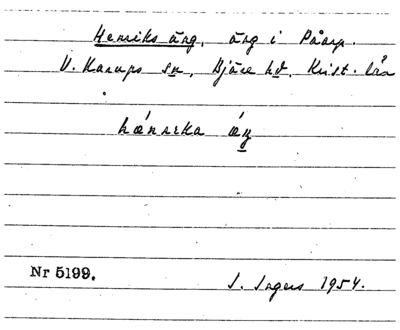 Henriks äng, äng i Påarp.
V. Karups sn, Bjäre hd, Krist. län
hǽnrɪka ǽŋ
Nr 5199.
I. Ingers 1954.